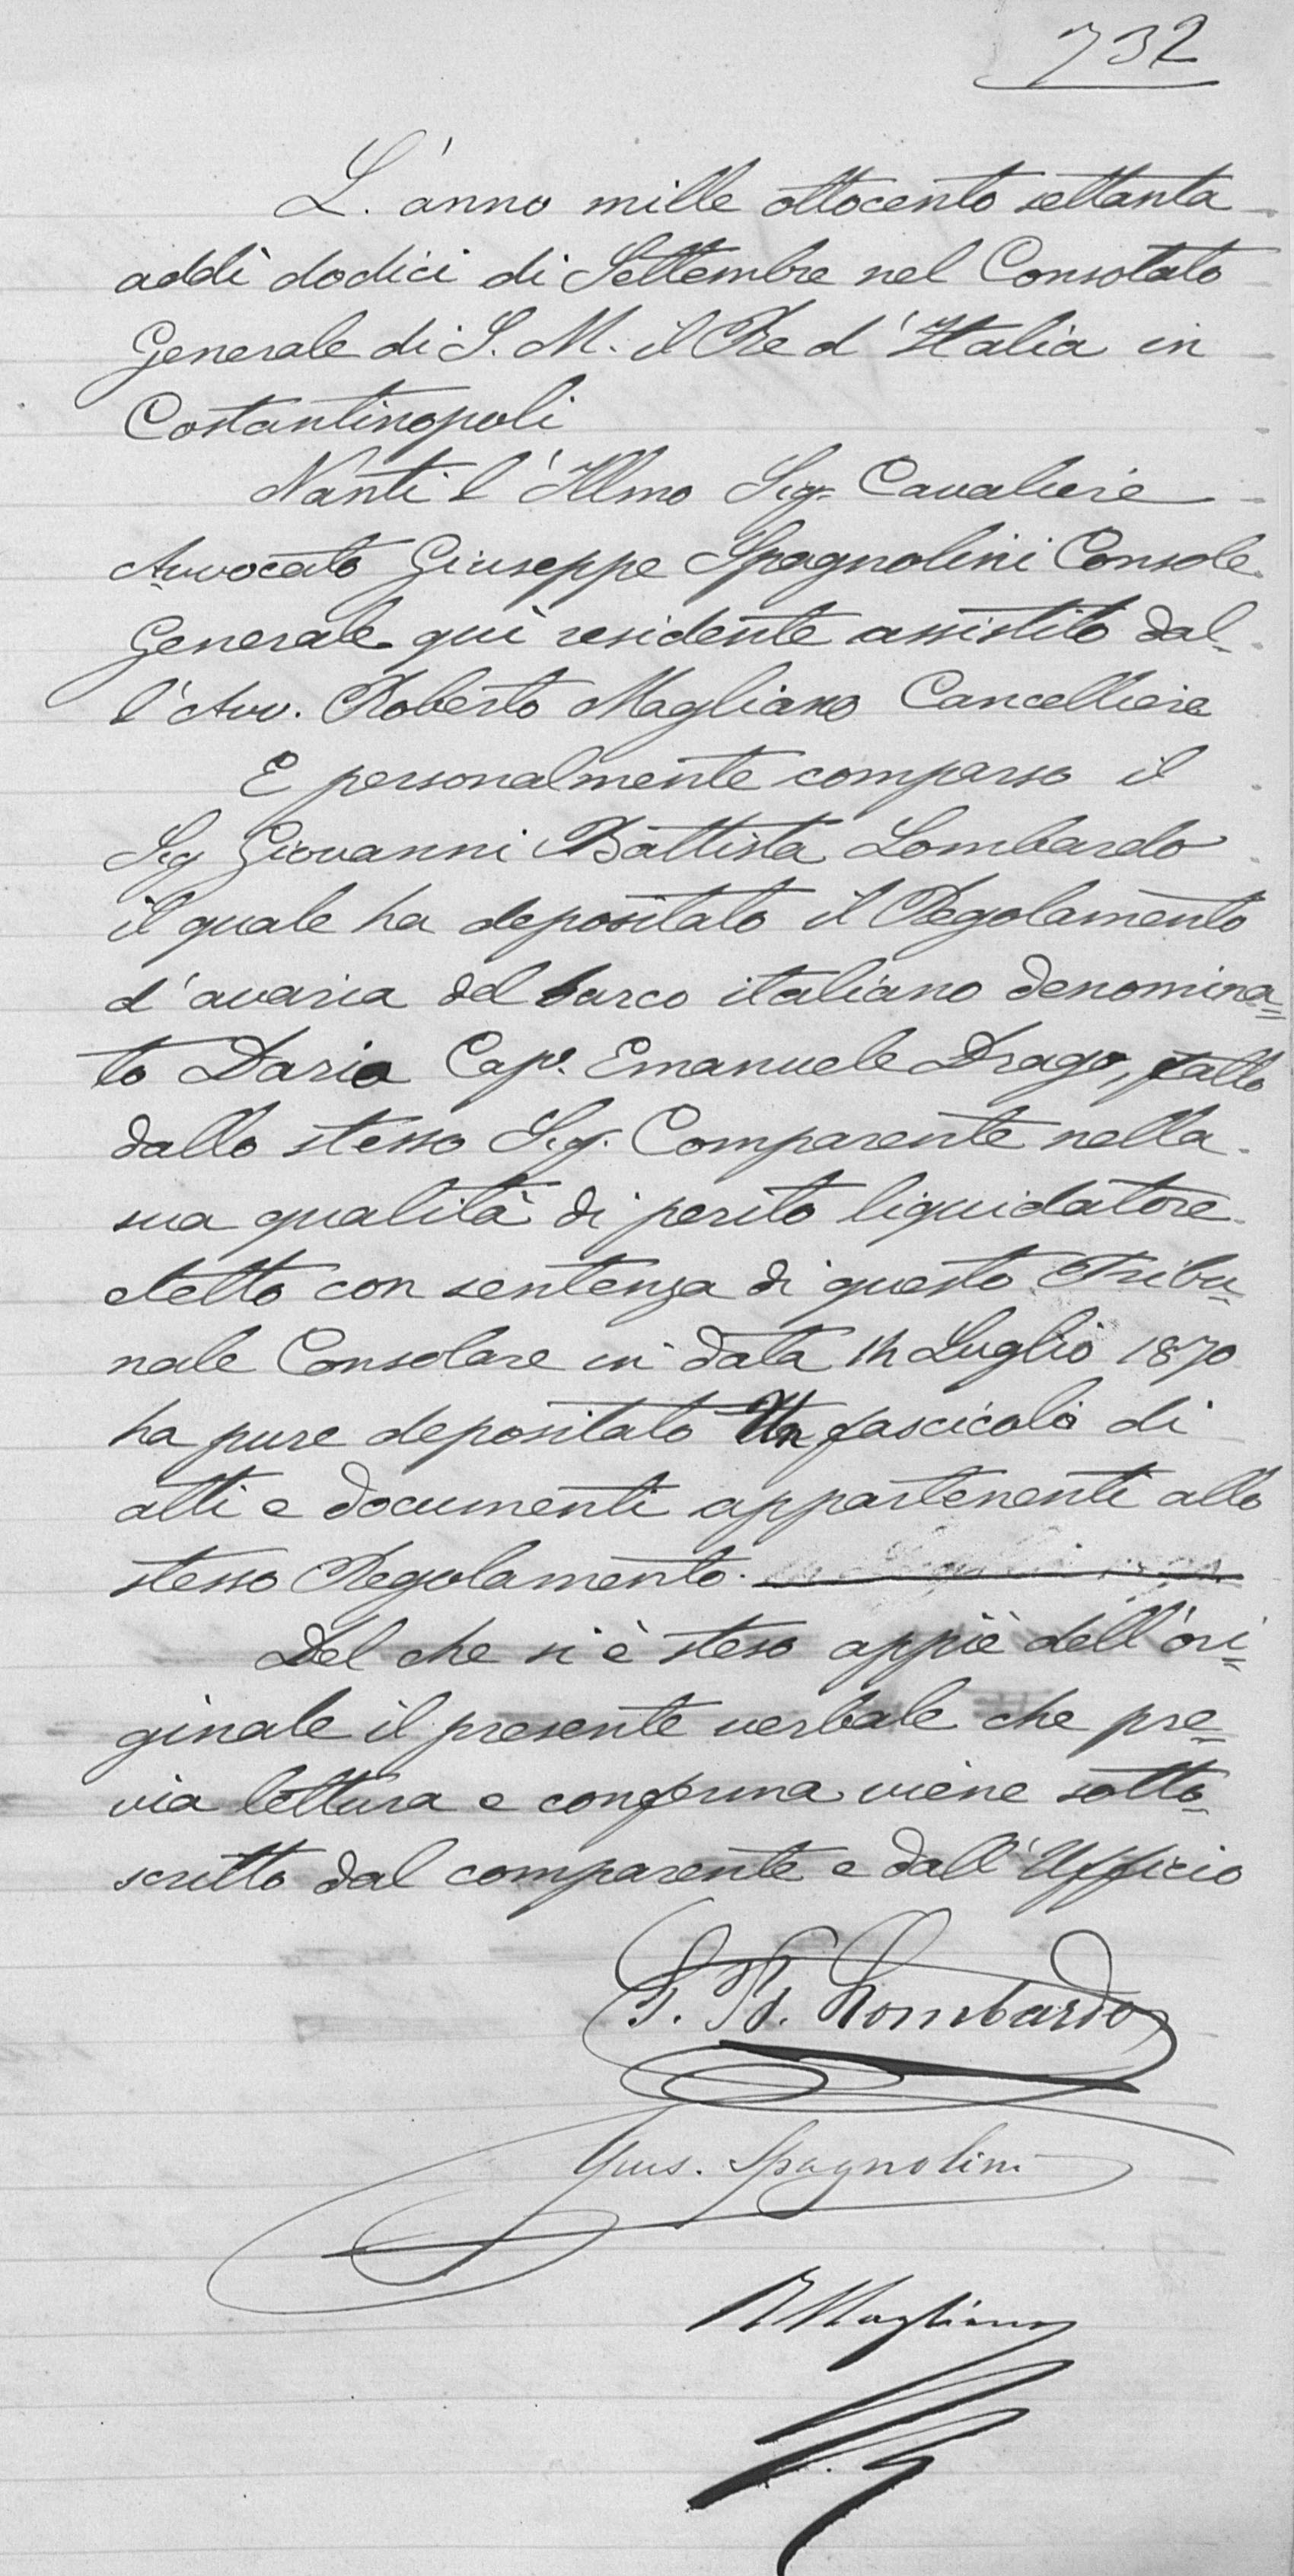 732
L'anno mille ottocento settanta
addì dodici di Settembre nel Consolato
Generale di S. M. il Re d'Italia in
Costantinopoli
Nanti l'Illmo Sig. Cavaliere
Avvocato Giuseppe Spagnolini Console
Generale quì residente assistito dal-
l'Avv. Roberto Magliano Cancelliere
E personalmente comparso il
Sig Giovanni Battista Lombardo
il quale ha depositato il Regolamento
d'avaria del barco italiano denomina=
to Daria Capº. Emanuele Drago, fatto
dallo stesso Sig. Comparente nella
sua qualità di perito liquidatore
eletto con sentenza di questo Tribu=
nale Consolare in data 14 Luglio 1870
ha pure depositato Un fascicolo di
atti e documenti appartenenti allo
stesso Regolamento.
Del che si è steso appiè dell'ori=
ginale il presente verbale che pre=
via lettura e conferma viene sotto=
scritto dal comparente e dall'Ufficio
G. B. Lombardo
Gius. Spagnolini
R Magliano